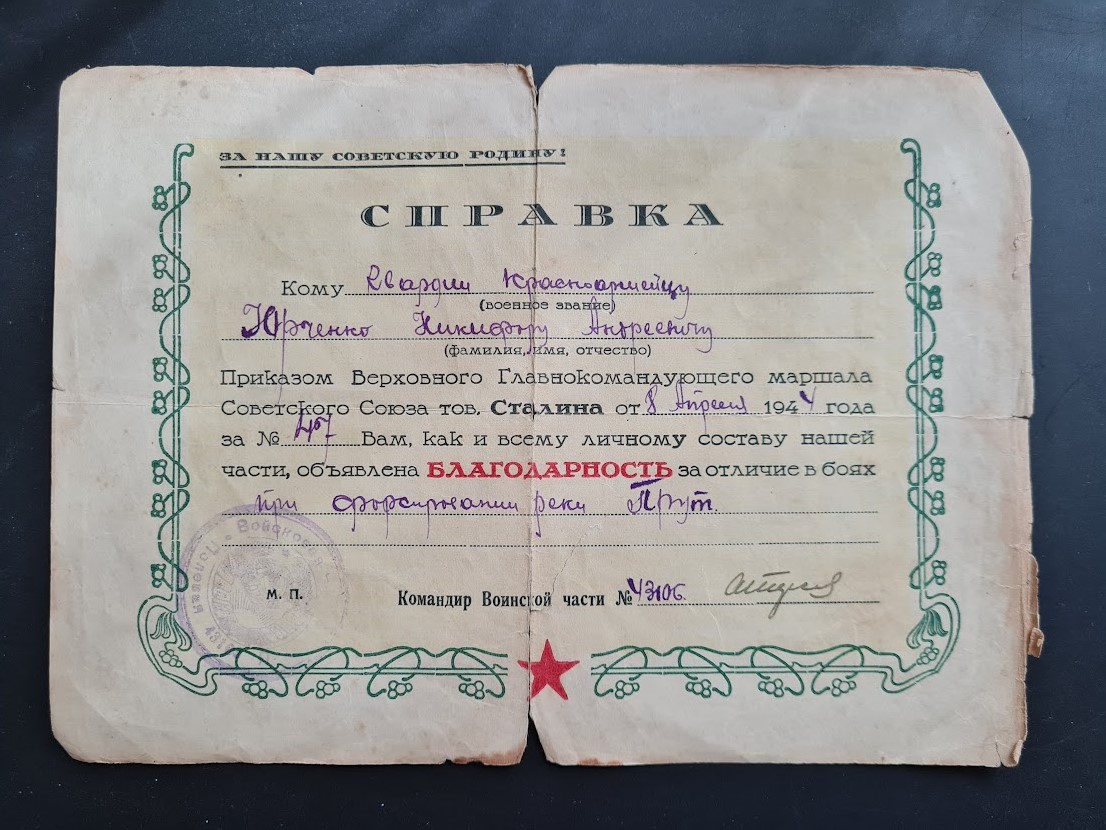 ЗА НАШУ СОВЕТСКУЮ РОДИНУ!
СПРАВКА
Кому Гвардии Красноармейцу
(военное звание)
Юрченко Никифору Андреевичу
(фамилия, имя, отчество)
Приказом Верховного Главнокомандующего маршала
Советского Союза тов. Сталина от 8 Апреля 1944 года
за № Вам, как и всему личному составу нашей
части, объявлена БЛАГОДАРНОСТЬ за отличие в боях
при форсировании реки Прут.
Войсковая
Полевая
М. П.
Командир Воинской части № 43106.